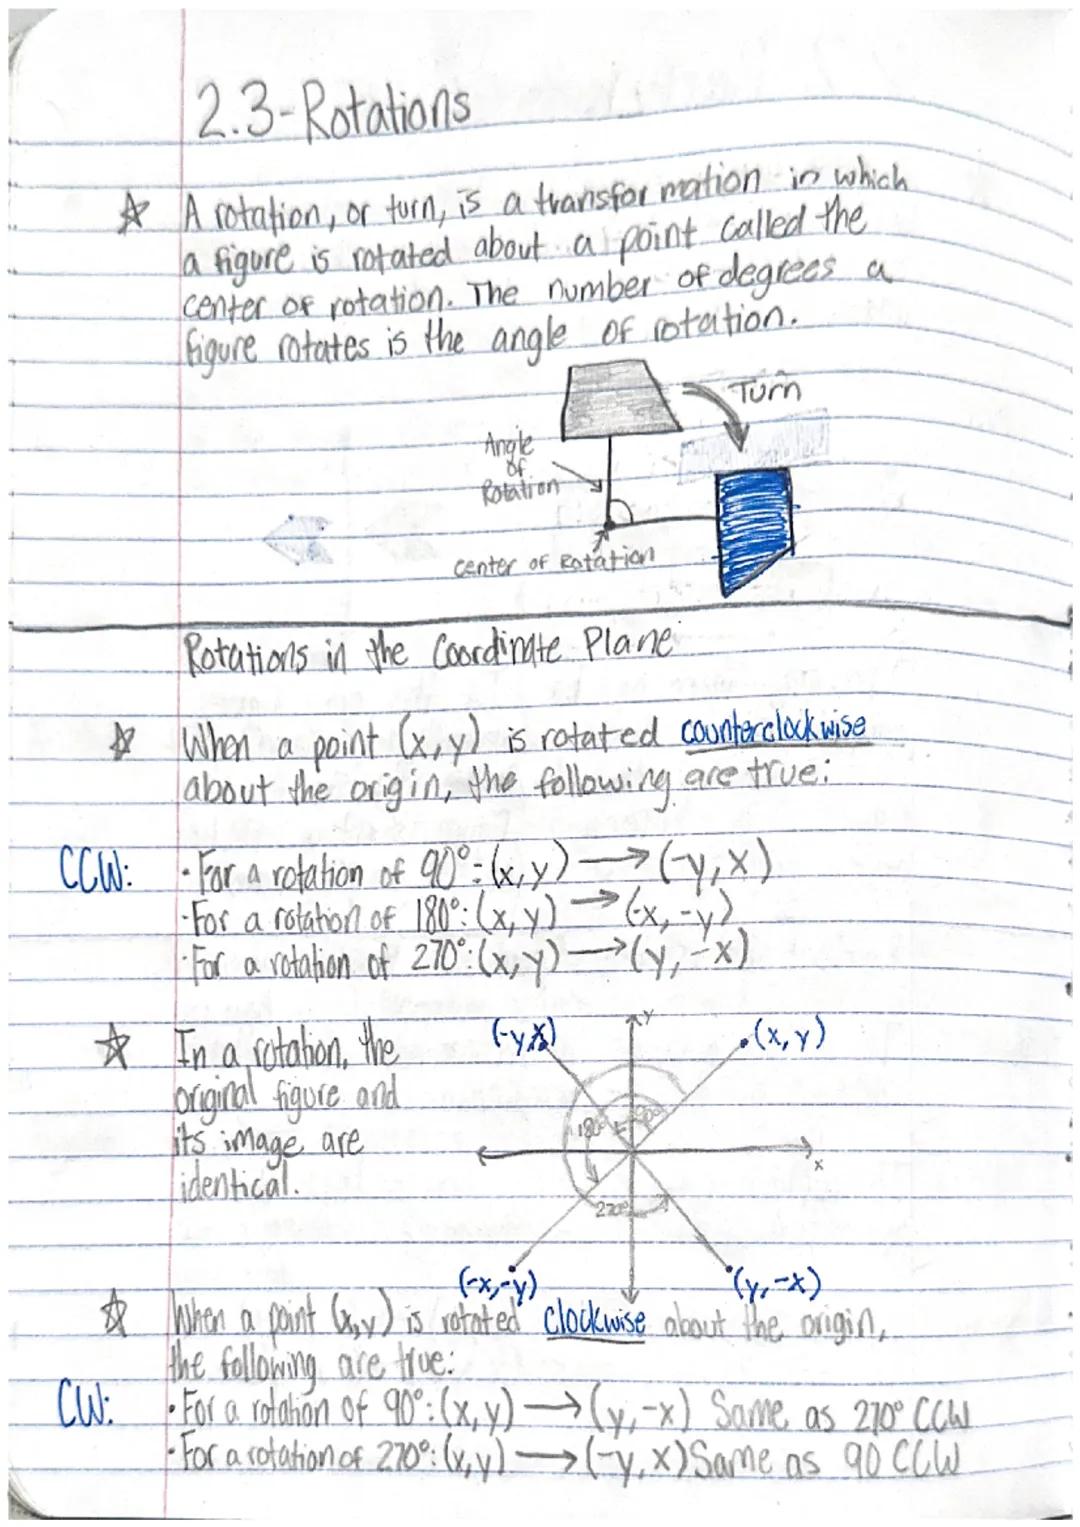 2.3-Rotations
☆ A rotation, or turn, is a transformation in which
a figure is rotated about a point called the
center of rotation. The number of degrees a
figure rotates is the angle of rotation.
Turn
Angle
of
Rotation
center of Rotation
Rotations in the Coordinate Plane
☆ When a point (x,y) is rotated counterclockwise
about the origin, the following are true:
CCW: · For a rotation of 90°: (x,y) → (-y,x)
· For a rotation of 180°: (x,y) → (-x,-y)
· For a rotation of 270°: (x,y) → (y,-x)
☆ In a rotation, the
original figure and
its image are
identical.
(-y,x)
y
(x,y)
180°
90°
x
270°
(-x,-y)
(y,-x)
☆ When a point (x,y) is rotated clockwise about the origin,
the following are true:
CW: · For a rotation of 90°: (x,y) → (y,-x) Same as 270° CCW
· For a rotation of 270°: (x,y) → (-y,x) Same as 90 CCW